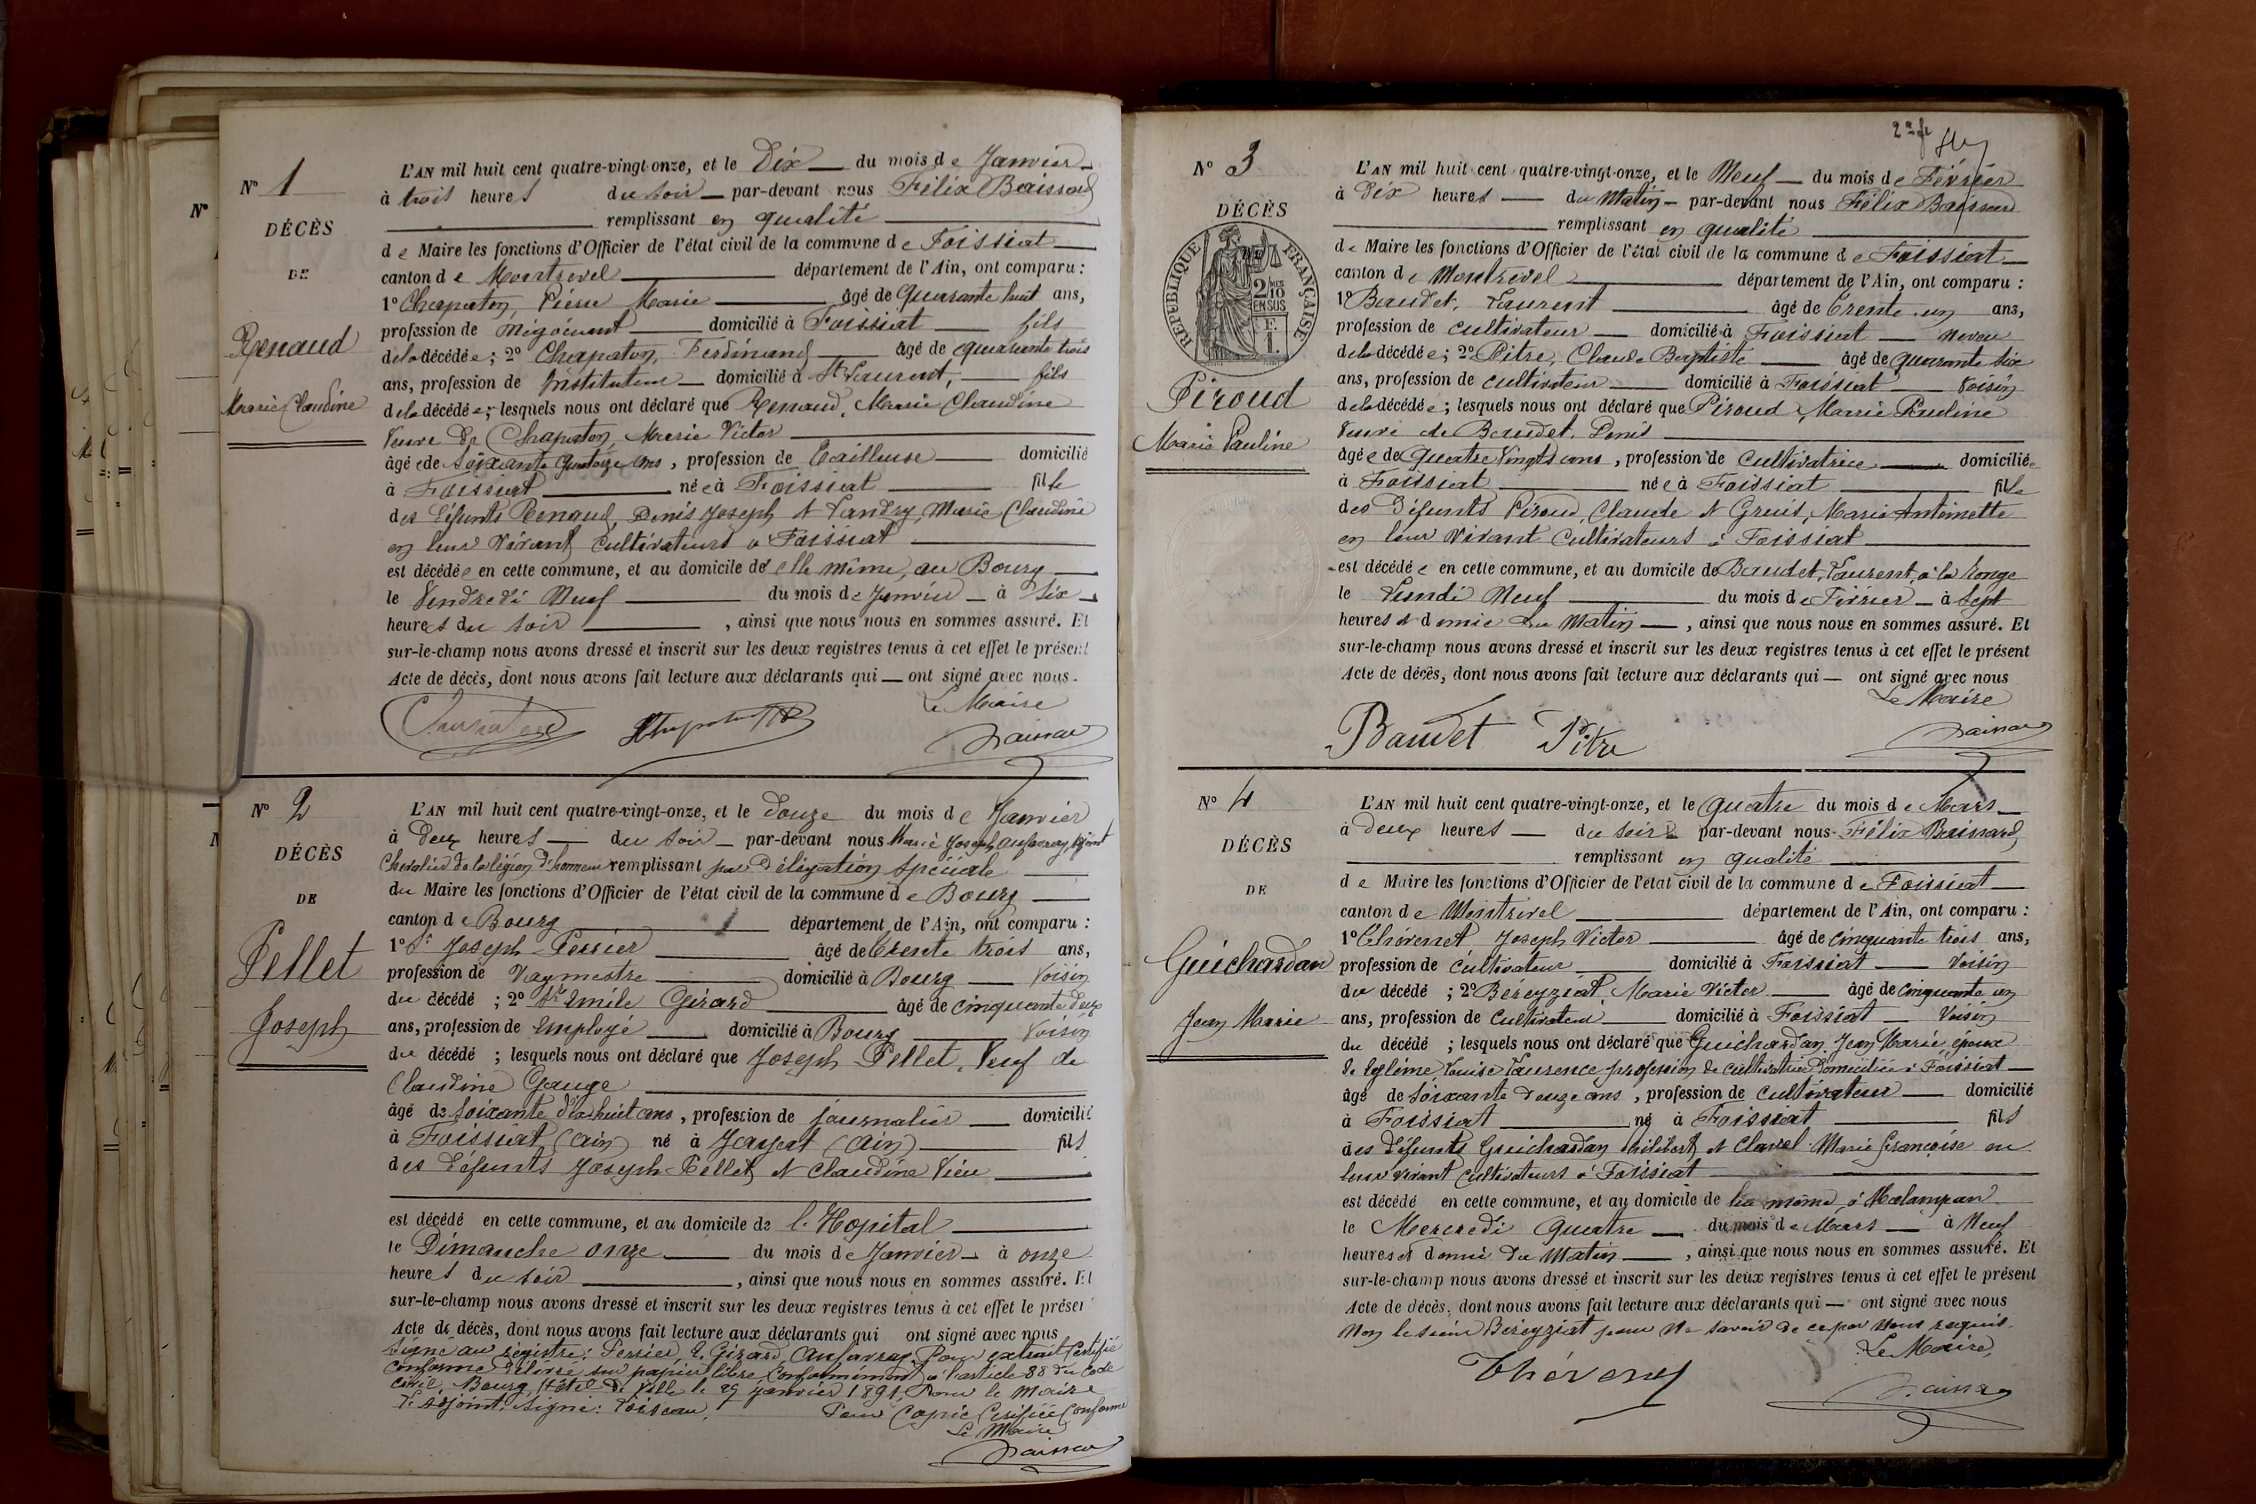 N° 1
DÉCÈS
DE
Renaud
Marie Claudine
L'AN mil huit cent quatre-vingt-onze, et le Dix du mois de Janvier
à trois heures du soir par-devant nous Félix Baissard
remplissant en qualité
de Maire les fonctions d'Officier de l'état civil de la commune de Foissiat
canton de Montrevel département de l'Ain, ont comparu :
1° Chapaton, Pierre Marie âgé de Quarante huit ans,
profession de Négociant domicilié à Foissiat fils
de la décédée ; 2° Chapaton, Ferdinand âgé de quarante trois
ans, profession de Instituteur domicilié à St Laurent, fils
de la décédée ; lesquels nous ont déclaré que Renaud, Marie Claudine
Veuve de Chapaton, Marie Victor
âgée de Soixante quatorze ans, profession de Tailleuse domicilié
à Foissiat née à Foissiat fille
des défunts Renaud, Denis Joseph et Landry, Marie Claudine
en leur vivant cultivateurs à Foissiat
est décédée en cette commune, et au domicile de elle même, au Bourg
le Vendredi Neuf du mois de Janvier à Six
heures du soir , ainsi que nous nous en sommes assuré. Et
sur-le-champ nous avons dressé et inscrit sur les deux registres tenus à cet effet le présent
Acte de décès, dont nous avons fait lecture aux déclarants qui ont signé avec nous.
Le Maire
N° 2
DÉCÈS
DE
Pellet
Joseph
L'AN mil huit cent quatre-vingt-onze, et le douze du mois de Janvier
à Deux heures du soir par-devant nous Marie Joseph Aufavray, Adjoint
Chevalier de la légion d'honneur remplissant par Délégation Spéciale
du Maire les fonctions d'Officier de l'état civil de la commune de Bourg
canton de Bourg département de l'Ain, ont comparu :
1° Sr Joseph Perrier âgé de trente trois ans,
profession de Vaguemestre domicilié à Bourg Voisin
du décédé ; 2° Sr Emile Girard âgé de cinquante deux
ans, profession de Employé domicilié à Bourg Voisin
du décédé ; lesquels nous ont déclaré que Joseph Pellet, Veuf de
Claudine Gauge
âgé de Soixante dix huit ans, profession de journalier domicilié
à Foissiat (Ain) né à Jayat (Ain) fils
des défunts Joseph Pellet et Claudine Vieu
est décédé en cette commune, et au domicile de l'Hopital
le Dimanche onze du mois de Janvier à onze
heures du soir , ainsi que nous nous en sommes assuré. Et
sur-le-champ nous avons dressé et inscrit sur les deux registres tenus à cet effet le présen
Acte de décès, dont nous avons fait lecture aux déclarants qui ont signé avec nous
Signé au registre : Perrier, E. Girard, Aufavray. Pour extrait certifié
conforme Délivré sur papier libre, Conformément à l'article 80 du Code
civil, Bourg, Hôtel de Ville le 29 janvier 1891. Pour le Maire
L'adjoint, Signé : Loiseau.
Pour Copie Certifiée Conforme
Le Maire
N° 3
DÉCÈS
RÉPUBLIQUE FRANÇAISE
2/10
EN SUS
Piroud
Marie Pauline
L'AN mil huit cent quatre-vingt-onze, et le Neuf du mois de Février
à Dix heures du Matin par-devant nous Félix Baissard
remplissant en qualité
de Maire les fonctions d'Officier de l'état civil de la commune de Foissiat
canton de Montrevel département de l'Ain, ont comparu :
1° Baudet, Laurent âgé de trente un ans,
profession de cultivateur domicilié à Foissiat neveu
de la décédée ; 2° Pitre, Claude Baptiste âgé de quarante six
ans, profession de cultivateur domicilié à Foissiat Voisin
de la décédée ; lesquels nous ont déclaré que Piroud, Marie Pauline
Veuve de Baudet, Denis
âgée de Quatre Vingts ans, profession de Cultivatrice domiciliée
à Foissiat née à Foissiat fille
des Défunts Piroud, Claude et Gruis, Marie Antoinette
en leur vivant Cultivateurs à Foissiat
est décédée en cette commune, et au domicile de Baudet, Laurent, à la Ronge
le Lundi Neuf du mois de Février à Sept
heures et demie du Matin , ainsi que nous nous en sommes assuré. Et
sur-le-champ nous avons dressé et inscrit sur les deux registres tenus à cet effet le présent
Acte de décès, dont nous avons fait lecture aux déclarants qui ont signé avec nous
Le Maire
Baudet Pitre
N° 4
DÉCÈS
DE
Guichardan
Jean Marie
L'AN mil huit cent quatre-vingt-onze, et le Quatre du mois de Mars
à deux heures du soir par-devant nous Félix Baissard
remplissant en qualité
de Maire les fonctions d'Officier de l'état civil de la commune de Foissiat
canton de Montrevel département de l'Ain, ont comparu :
1° Thévenet Joseph Victor âgé de cinquante trois ans,
profession de cultivateur domicilié à Foissiat Voisin
du décédé ; 2° Béreyziat, Marie Victor âgé de cinquante un
ans, profession de Cultivateur domicilié à Foissiat Voisin
du décédé ; lesquels nous ont déclaré que Guichardan, Jean Marie époux
de Louise Laurence, profession de cultivatrice Domiciliée à Foissiat
âgé de soixante douze ans, profession de cultivateur domicilié
à Foissiat né à Foissiat fils
des Défunts Guichardan Philibert et Clavel Marie Françoise en
leur vivant Cultivateurs à Foissiat
est décédé en cette commune, et au domicile de lui même, à Malampan
le Mercredi Quatre du mois de Mars à Neuf
heures et demie du Matin , ainsi que nous nous en sommes assuré. Et
sur-le-champ nous avons dressé et inscrit sur les deux registres tenus à cet effet le présent
Acte de décès, dont nous avons fait lecture aux déclarants qui ont signé avec nous
Non le sieur Béreyziat pour ne savoir de ce par nous requis.
Le Maire,
Thévenet